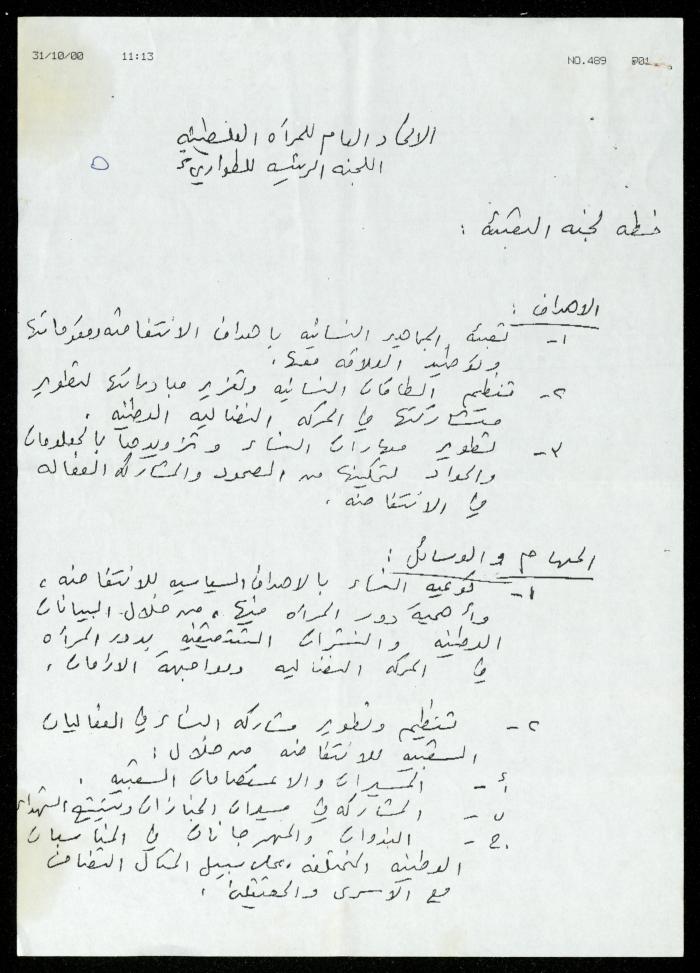 31/10/00 11:13 NO.489 P01
الاتحاد العام للمرأه الفلسطينيه
اللجنه الرئيسيه للطوارئ
خطه لجنه التعبئة :
الاهداف :
١- تعبئة الجماهير النسائيه باهداف الانتفاضه ومقوماتها
وتوطيد العلاقه معها .
٢- تنظيم الطاقات النسائيه وتعزيز مبادراتها لتطوير
مشاركتها في الحركه النضاليه الوطنيه .
٣- تطوير مهارات النساء وتزويدها بالمعلومات
والمواد لتمكينها من الصمود والمشاركه الفعاله
في الانتفاضه .
المهام والوسائل :
١- توعيه النساء بالاهداف السياسيه للانتفاضه ،
وأهمية دور المرأه فيها ، من خلال البيانات
الوطنيه والنشرات التثقيفيه بدور المرأه
في الحركه النضاليه ومواجهة الازمات .
٢- تنظيم وتطوير مشاركه النساء في الفعاليات
الشعبيه للانتفاضه من خلال :
أ- المسيرات والاعتصامات الشعبيه .
ب- المشاركه في مسيرات الجنازات وتشييع الشهداء
ج- الندوات والمهرجانات في المناسبات
الوطنيه المختلفه ، على سبيل المثال التضامن
مع الأسرى والمعتقلين .